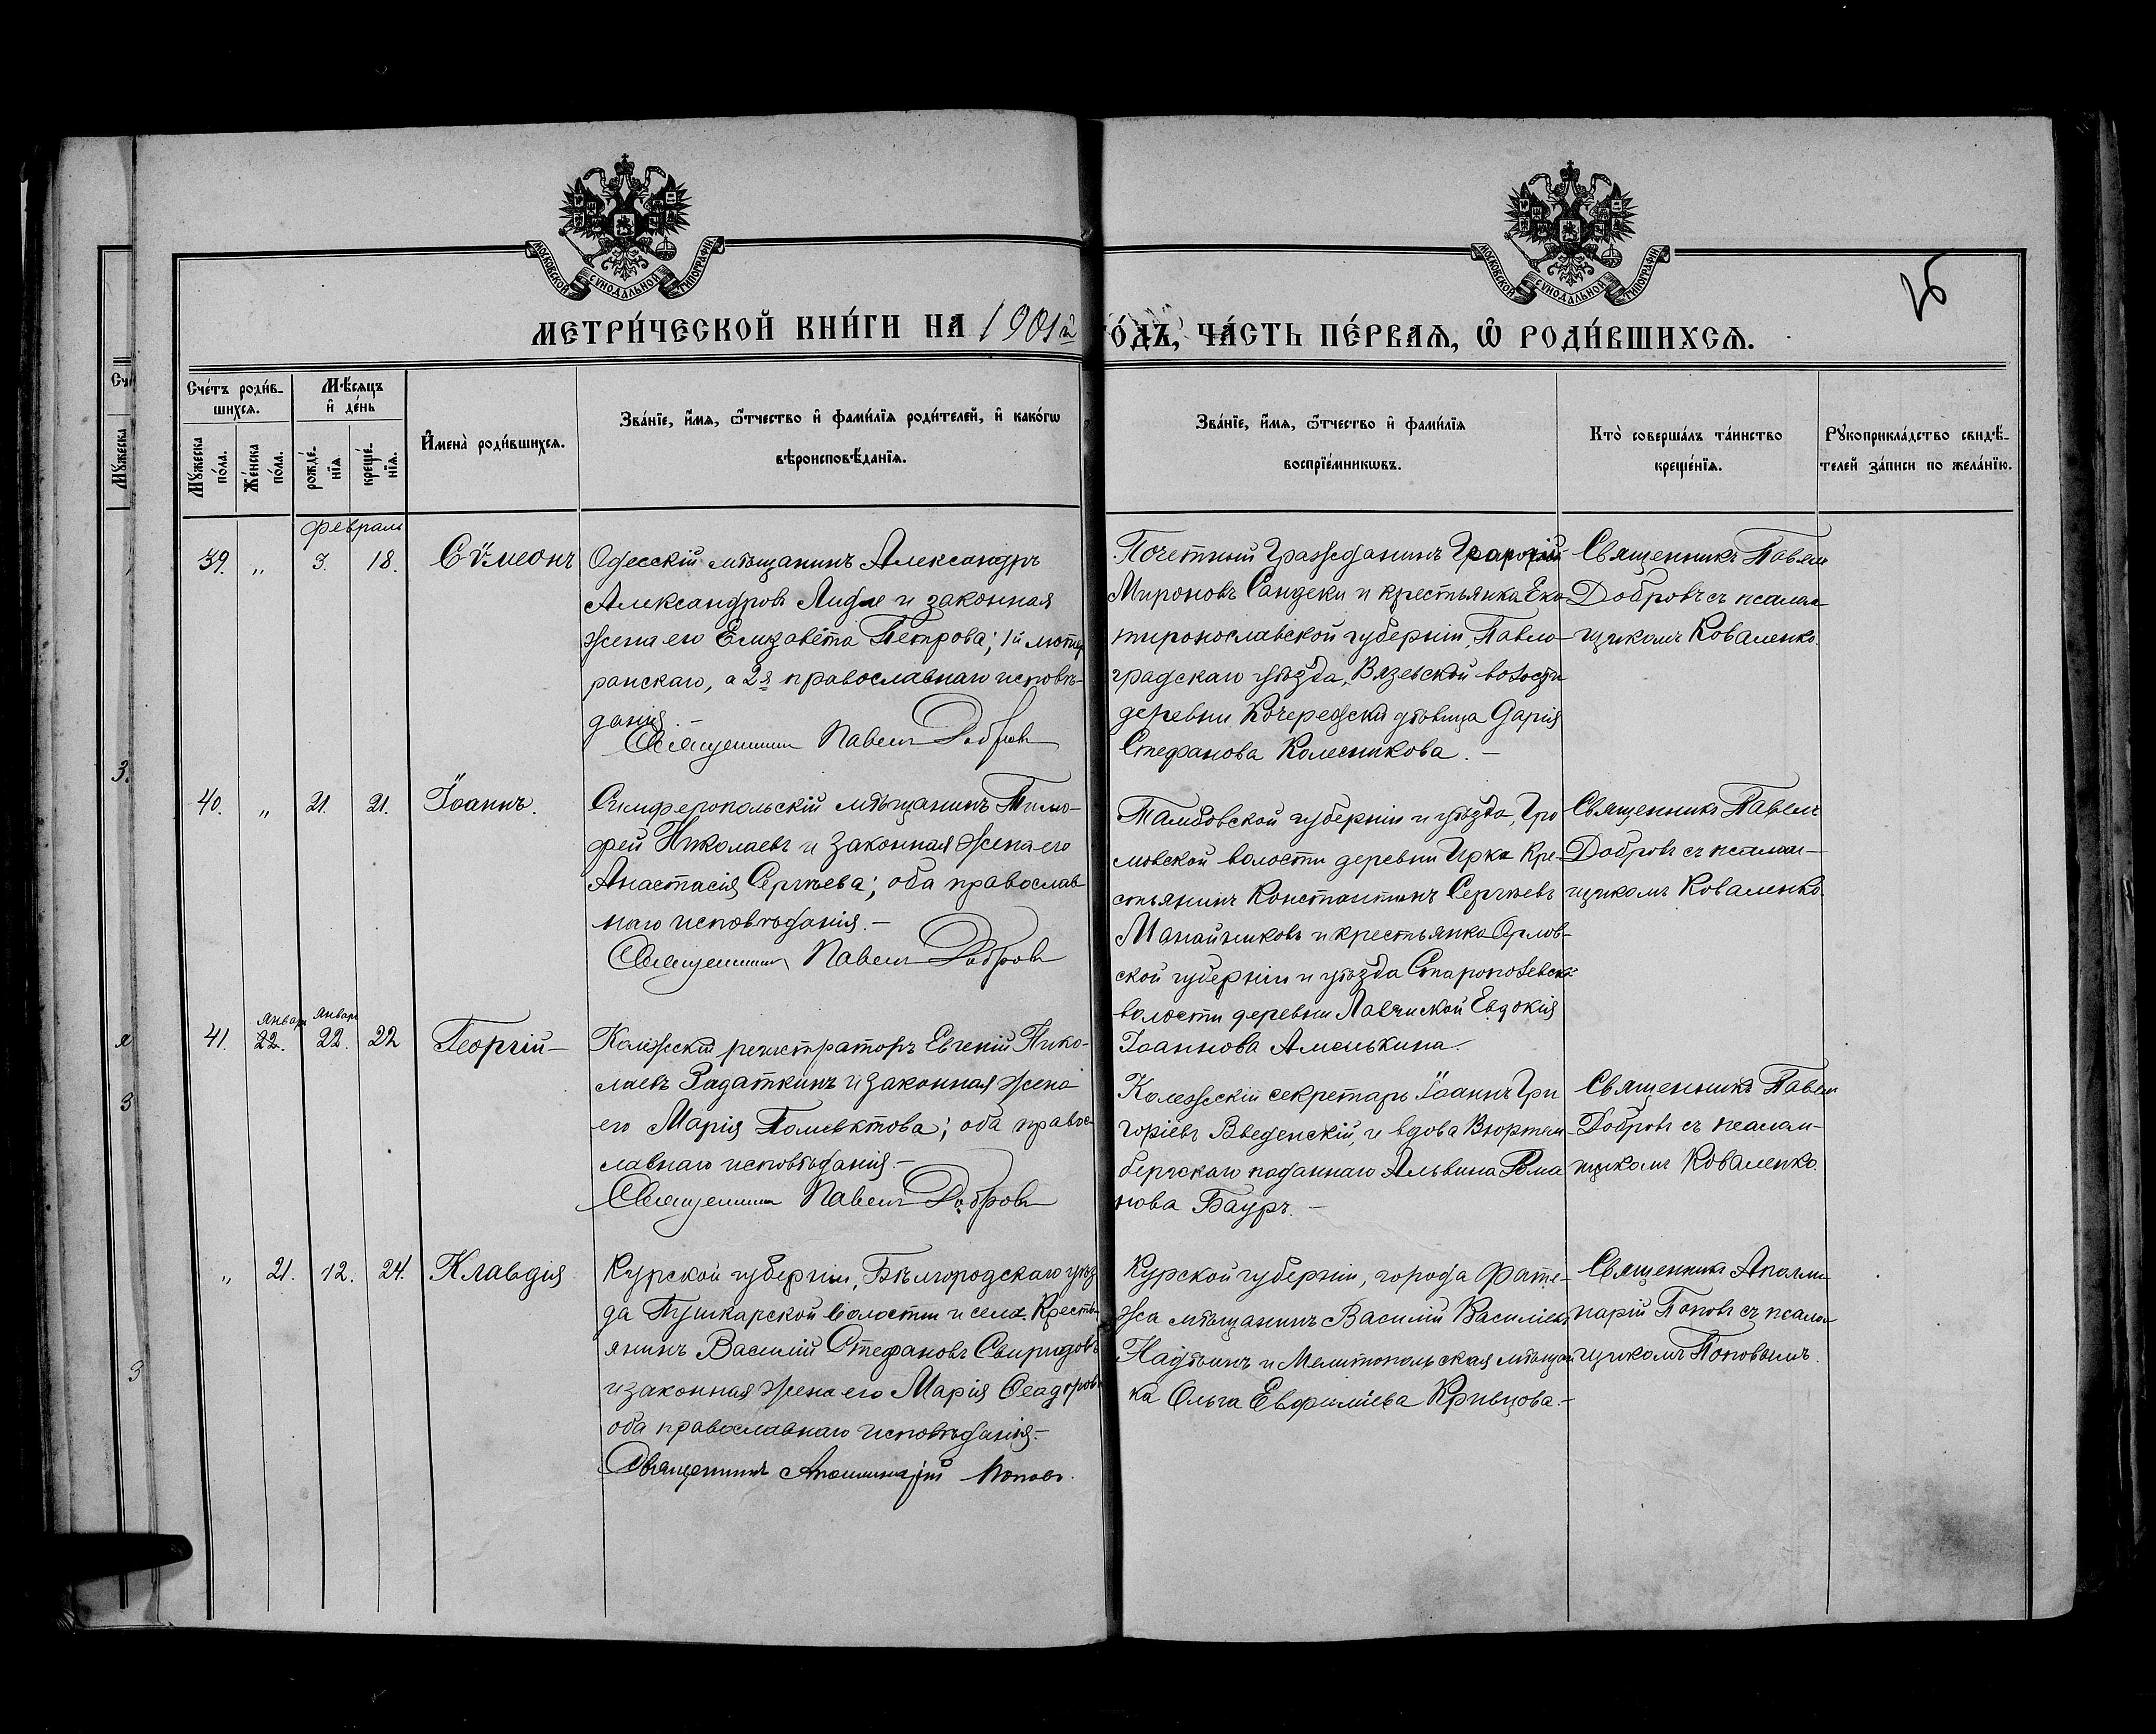 МОСКОВСКОЙ СѴНОДАЛЬНОЙ ТИПОГРАФІИ
МОСКОВСКОЙ СѴНОДАЛЬНОЙ ТИПОГРАФІИ
25
МЕТРИ́ЧЕСКОЙ КНИ́ГИ НА 1901й ГО́ДЪ, ЧА́СТЬ ПЕ́РВАЯ, Ѡ РОДИ́ВШИХСЯ.
Сче́тъ роди́в-
шихся.
Мꙋ́жеска по́ла.
Же́нска по́ла.
Мѣ́сяцъ
и҆ де́нь
рожде́нїя
креще́нїя.
И҆мена̀ роди́вшихся.
Зва́нїе, и҆́мя, ѻ҆́тчество и҆ фами́лїя роди́телей, и҆ како́гѡ
вѣроисповѣ́данїя.
Зва́нїе, и҆́мя, ѻ҆́тчество и҆ фами́лїя
воспрїе́мникѡвъ.
Кто̀ соверша́лъ та́инство
креще́нїя.
Рꙋкоприкла́дство свидѣ́-
телей за́писи по жела́нїю.
Февраль
39. „ 3. 18. Сѵмеонъ
Одесскій мѣщанинъ Александръ
Александровъ Лидле и законная
жена его Елизавета Петрова; 1й люте
ранскаго, а 2я православнаго исповѣ-
данія.-
Священникъ Павелъ Добровъ
Почетный Гражданинъ
Мироновъ Сандеки и крестьянка Ека-
теринославской губерніи, Павло-
градскаго уѣзда, Вязевской волости
деревни Кочережски дѣвица Дарія
Стефанова Колесникова.-
Священникъ Павелъ
Добровъ съ псалом-
щикомъ Коваленко.
40. „ 21. 21. Іоаннъ.
Симферопольскій мѣщанинъ Тимо-
фей Николаевъ и законная жена его
Анастасія Сергѣева; оба православ-
наго исповѣданія.-
Священникъ Павелъ Добровъ
Тамбовской губерніи и уѣзда,
мовской волости деревни Кре-
стьянинъ Константинъ Сергѣевъ
Манайниковъ и крестьянка Орлов-
ской губерніи и уѣзда
волости деревни Евдокія
Іоаннова Аменькина.
Священникъ Павелъ
Добровъ съ псалом-
щикомъ Коваленко.
январь январь
41. 22. 22. 22 Георгій-
Колежскій регистраторъ Евгеній Нико-
лаевъ Задаткинъ и законная жена
его Марія Поліевктова; оба правос-
лавнаго исповѣданія.-
Священникъ Павелъ Добровъ
Колежскій секретарь Іоаннъ Гри
горіевъ Введенскій, и вдова Виртем-
бергскаго подданнаго Альвина Рома
нова Бауръ.-
Священникъ Павелъ
Добровъ съ псалом-
щикомъ Коваленко.
„ 21. 12. 24. Клавдія
Курской губерніи, Бѣлгородскаго уѣз
да Пушкарской волости и села Кресть-
янинъ Василій Стефановъ Свиридовъ
и законная жена его Марія Ѳеодорова
оба православнаго исповѣданія.-
Священникъ Аполлинарій Поповъ.
Курской губерніи, города Фате-
жа мѣщанинъ Василій Василіевъ
Надѣинъ и Мелитопольская мѣщан
ка Ольга Евфиміева Кривцова.-
Священникъ Аполли-
нарій Поповъ съ псалом-
щикомъ Поповымъ.